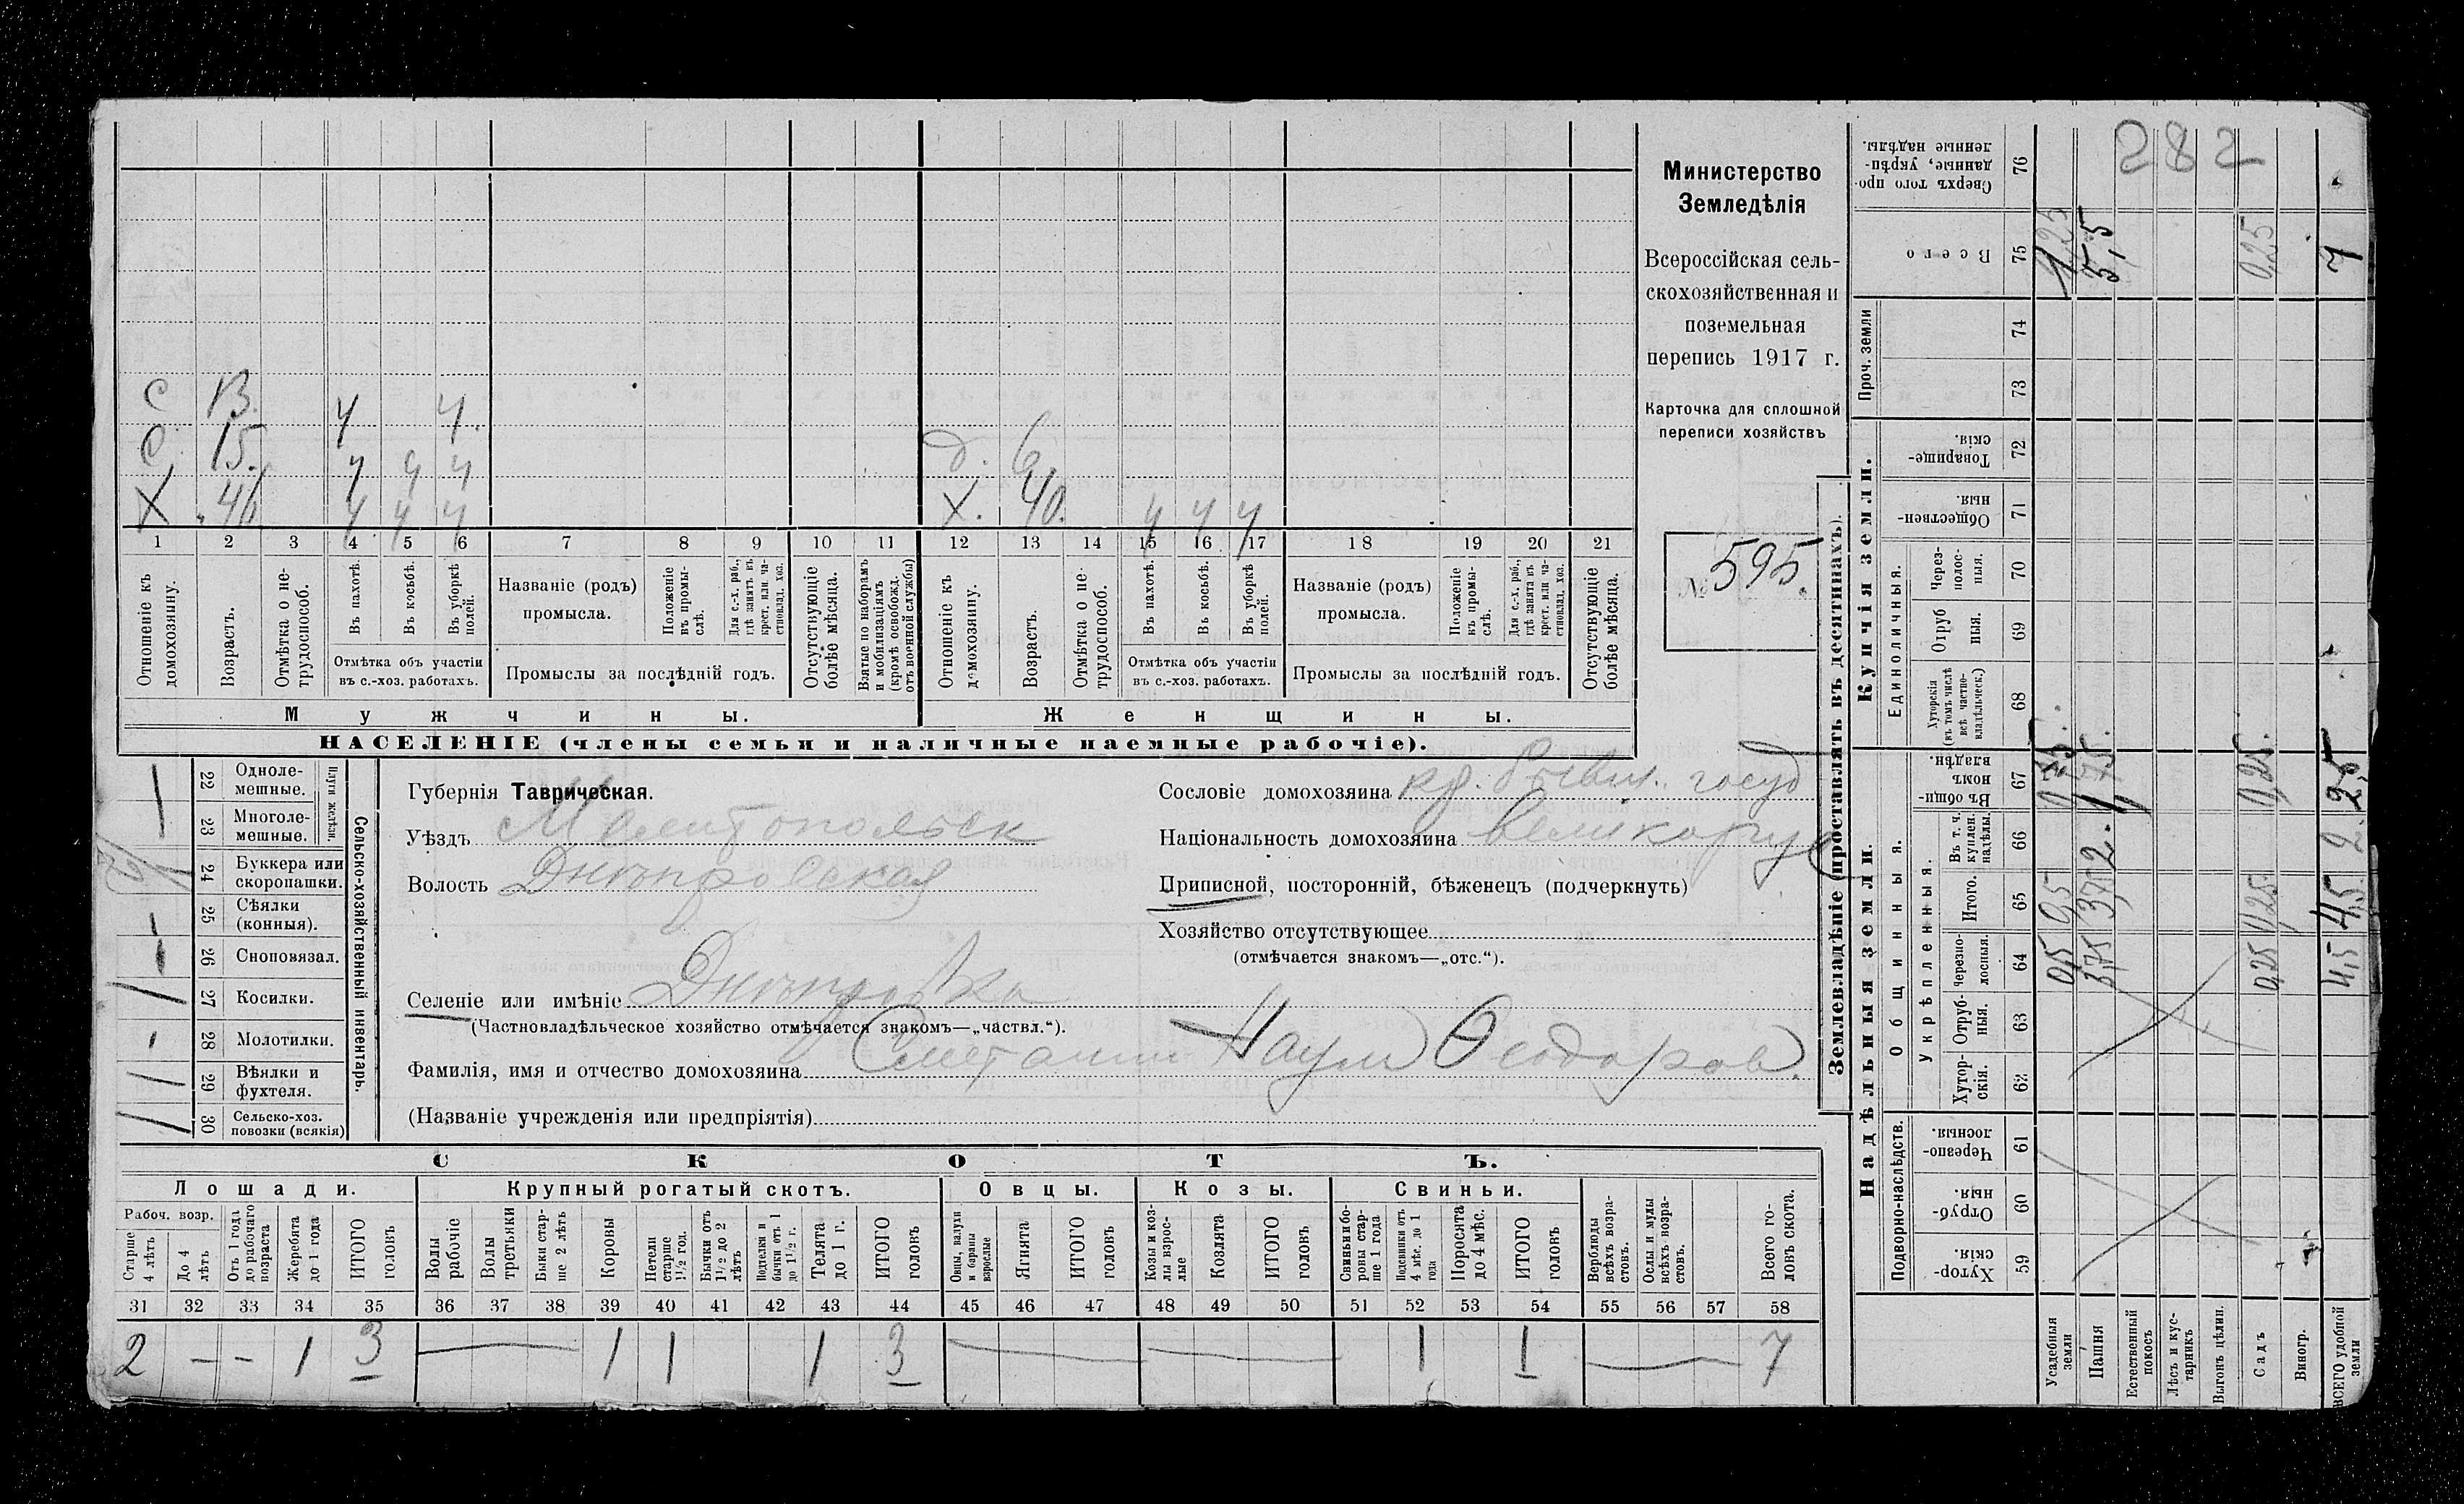 282
Министерство
Земледѣлія
Всероссійская сель-
скохозяйственная и
поземельная
перепись 1917 г.
Карточка для сплошной
переписи хозяйствъ
№ 595.
С 13. ч ч.
С 15. ч ч ч д. 6.
Х 46 ч ч ч Х. 40. ч ч ч
1 2 3 4 5 6 7 8 9 10 11 12 13 14 15 16 17 18 19 20 21
Отношеніе къ домохозяину.
Возрастъ.
Отмѣтка о не-трудоспособ.
Въ пахотѣ.
Въ косьбѣ.
Въ уборкѣ полей.
Отмѣтка объ участіи
въ с.-хоз. работахъ.
Названіе (родъ)
промысла.
Положеніе въ промы-слѣ.
Для с.-х. раб., гдѣ занятъ въ крест. или ча-стновлад. хоз.
Промыслы за послѣдній годъ.
Отсутствующіе болѣе мѣсяца.
Взятые по наборамъ и мобилизаціямъ (кромѣ освобожд. отъ военной службы)
Отношеніе къ домохозяину.
Возрастъ.
Отмѣтка о не-трудоспособ.
Въ пахотѣ.
Въ косьбѣ.
Въ уборкѣ полей.
Отмѣтка объ участіи
въ с.-хоз. работахъ.
Названіе (родъ)
промысла.
Положеніе въ промы-слѣ.
Для с.-х. раб., гдѣ занята въ крест. или ча-стновлад. хоз.
Промыслы за послѣдній годъ.
Отсутствующіе болѣе мѣсяца.
Мужчины. Женщины.
НАСЕЛЕНІЕ (члены семьи и наличные наемные рабочіе).
Сельско-хозяйственный инвентарь.
Плуги желѣзн.
22 Одноле-мешные.
1 23 Многоле-мешные.
24 Буккера или скоропашки.
25 Сѣялки (конныя).
26 Сноповязал.
1 27 Косилки.
28 Молотилки.
1 29 Вѣялки и фухтеля.
1 30 Сельско-хоз. повозки (всякія)
Губернія Таврическая.
Уѣздъ Мелитопольск
Волость Днѣпровская
Сословіе домохозяина кр. бывш. госуд
Національность домохозяина великорус
Приписной, посторонній, бѣженецъ (подчеркнуть)
Хозяйство отсутствующее
(отмѣчается знакомъ—„отс.“).
Селеніе или имѣніе Днѣпровка
(Частновладѣльческое хозяйство отмѣчается знакомъ—„частвл.“).
Фамилія, имя и отчество домохозяина Сметанин Наум Ѳеодоров.
(Названіе учрежденія или предпріятія)
СКОТЪ.
Лошади. Крупный рогатый скотъ. Овцы. Козы. Свиньи.
Рабоч. возр.
Старше 4 лѣтъ
До 4 лѣтъ
Отъ 1 года до рабочаго возраста
Жеребята до 1 года
ИТОГО головъ
Волы рабочіе
Волы третьяки
Быки стар-ше 2 лѣтъ
Коровы
Нетели старше 1 1/2 год.
Бычки отъ 1 1/2 до 2 лѣтъ
Подтелки и бычки отъ 1 до 1 1/2 г.
Телята до 1 г.
ИТОГО головъ
Овцы, валухи и бараны взрослые
Ягнята
ИТОГО головъ
Козы и коз-лы взрос-лые
Козлята
ИТОГО головъ
Свиньи и бо-ровы стар-ше 1 года
Подсвинки отъ 4 мѣс. до 1 года
Поросята до 4 мѣс.
ИТОГО головъ
Верблюды всѣхъ возра-стовъ.
Ослы и мулы всѣхъ возра-стовъ.
Всего го-ловъ скота.
31 32 33 34 35 36 37 38 39 40 41 42 43 44 45 46 47 48 49 50 51 52 53 54 55 56 57 58
2 — — 1 3 — 1 1 1 3 — — 1 1 — 7
Землевладѣніе (проставлять въ десятинахъ).
Надѣльныя земли.
Подворно-наслѣдств.
Хутор-скія. 59
Отруб-ныя. 60
Черезпо-лосныя. 61
Общинныя.
Укрѣпленныя.
Хутор-скія. 62
Отруб-ныя. 63
Черезпо-лосныя. 64
Итого. 65
Въ т. ч. куплен. надѣлы. 66
Въ общи-номъ владѣн. 67
Купчія земли.
Единоличныя.
Хуторскія (въ томъ числѣ всѣ частно-владѣльческ.) 68
Отруб ныя. 69
Через-полос-ныя. 70
Обществен-ныя. 71
Товарище-скія. 72
Проч. земли
73 74
Всего 75
Сверхъ того про-данные, укрѣп-ленные надѣлы. 76
Усадебныя земли 0,5 0,5 0,75. 1,25
Пашня 3,75 3,75 2. 1,75. 5,5
Естественный покосъ
Лѣсъ и кус-тарникъ
Выгонъ цѣлин.
Садъ 0,25 0,25 0,25. 0,25
Виногр.
ВСЕГО удобной земли 4,5 4,5 2. 2,5 7